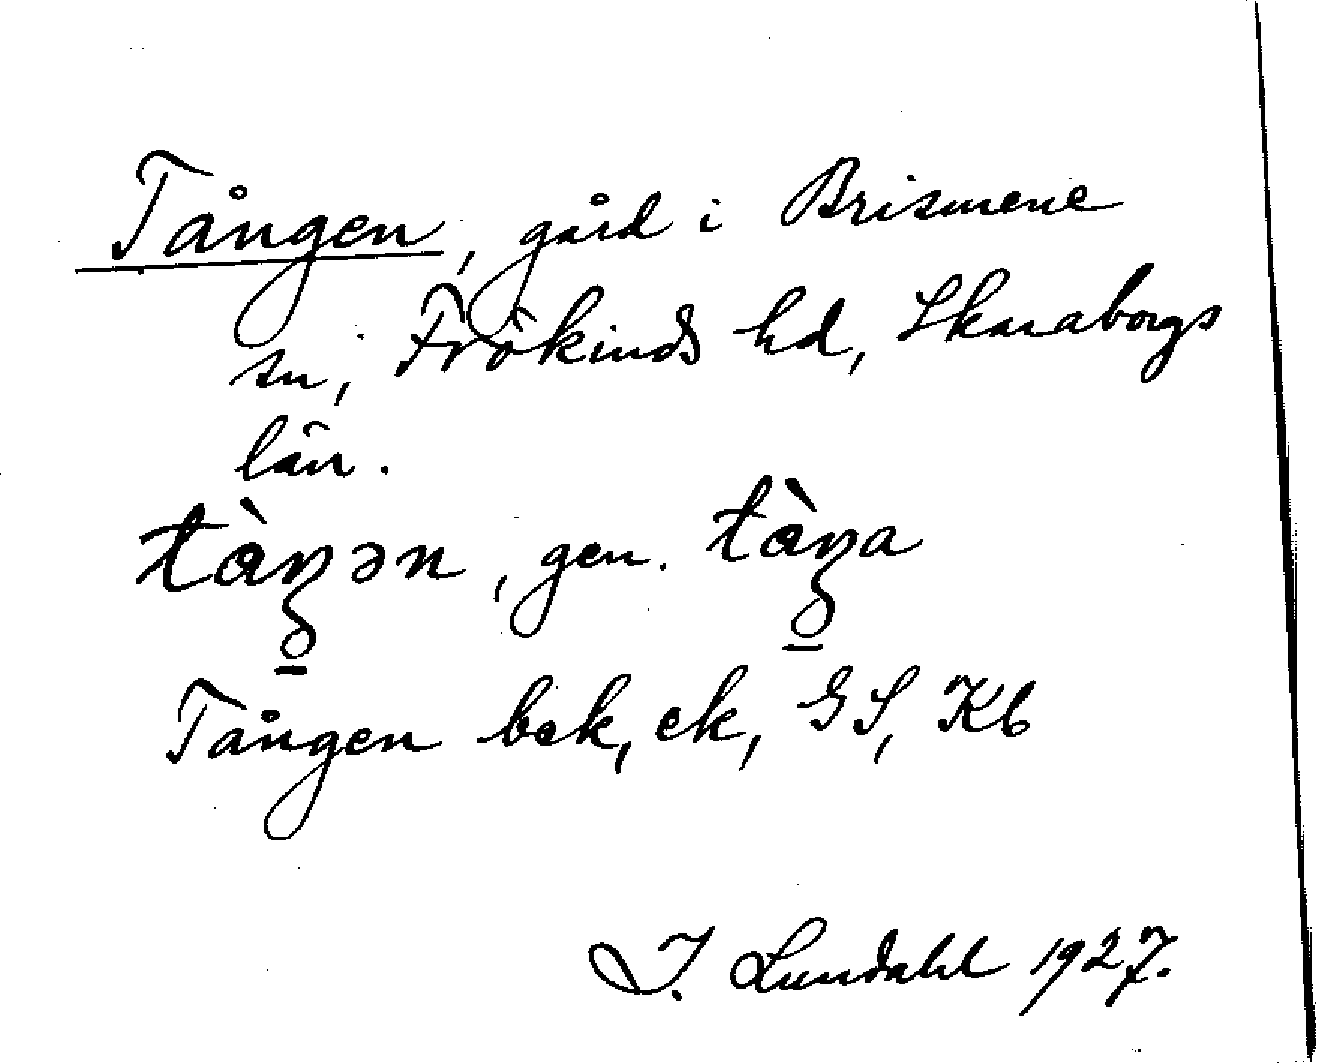 Tången, gård i Brismene
sn, Frökinds hd, Skaraborgs
län.
tàŋən, gen. tàŋa
Tången bek, ek, GS, Kb
I. Lundahl 1927.